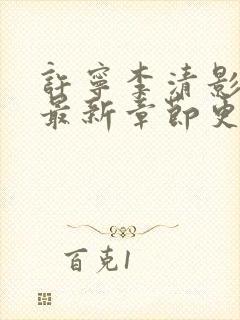 許寧李清影
最新章節更
百克1